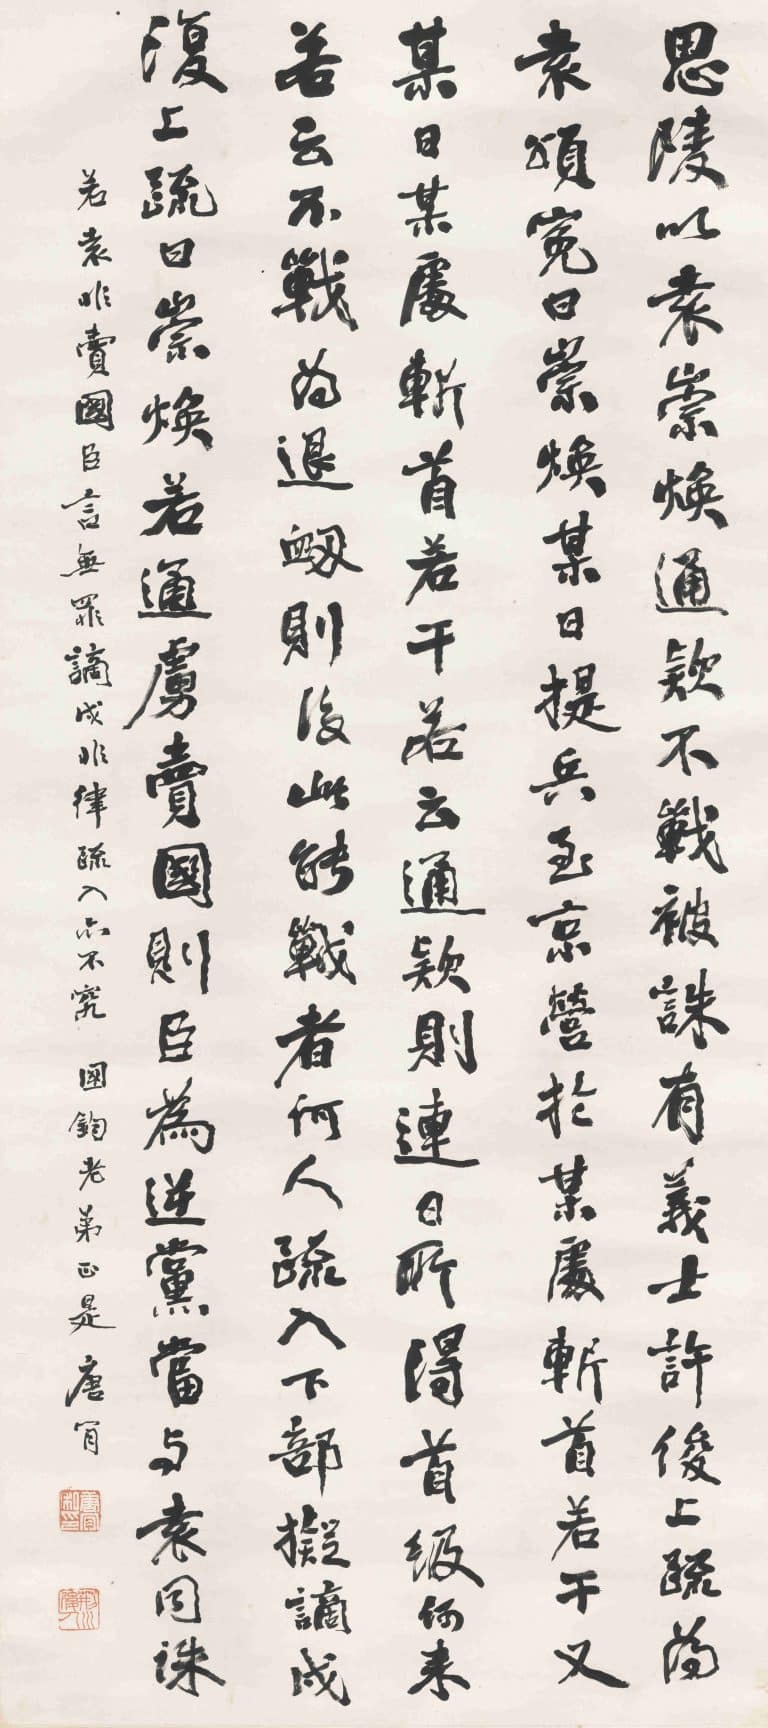 思陵以袁崇煥通款不戰被誅有義士許俊上疏為
袁頌冤曰崇煥某日提兵至京營於某處斬首若干又
某日某處斬首若干若云通款則連日所得首級何來
若云不戰為退衂則後此能戰者何人疏入下部擬謫戍
復上疏曰崇煥若通虜賣國則臣為逆黨當與袁同誅
若袁非賣國臣言無罪謫戍非律疏入亦不究 國鈞老弟正是 唐肎